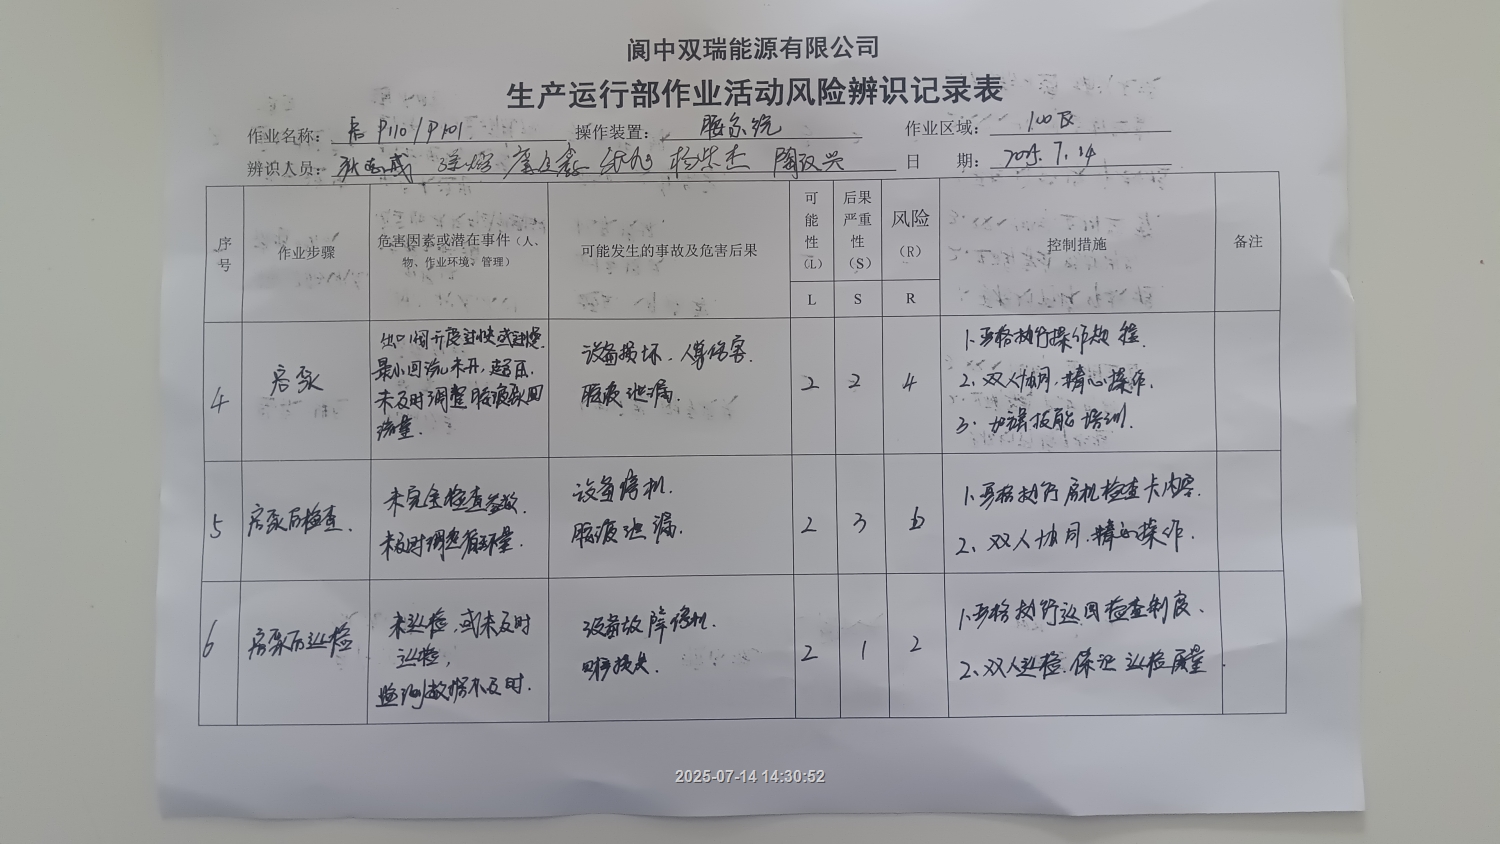 阆中双瑞能源有限公司
生产运行部作业活动风险辨识记录表
作业名称: 启P110/P101 操作装置: 胺系统 作业区域: 100区
辨识人员: 杨荣杰 陶汉兴 日 期: 2025.7.14
序号 作业步骤 危害因素或潜在事件(人、物、作业环境、管理) 可能发生的事故及危害后果 可能性(L) 后果严重性(S) 风险(R) 控制措施 备注
L S R
4 启泵
出口阀开度过快或过慢.
最小回流未开,超压.
未及时调整胺液泵回
流量.
设备损坏.人身伤害.
胺液泄漏.
2 2 4
1.严格执行操作规程.
2.双人协同.精心操作.
3.加强技能培训.
5 启泵后检查.
未完全检查参数.
未及时调整循环量.
设备停机.
胺液泄漏.
2 3 6
1.严格执行启机检查卡内容.
2.双人协同.精心操作.
6 启泵后巡检
未巡检,或未及时
巡检,
监测数据不及时.
设备故障停机.
财产损失.
2 1 2
1.严格执行巡回检查制度.
2.双人巡检.保证巡检质量.
2025-07-14 14:30:52